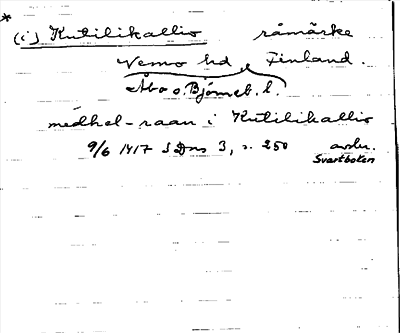 *
(i) Kutilikallio råmärke
Vemo hd, Finland.
Åbo o. Björneb. l.
medhel-raan i Kutilikallio
9/6 1417 SDns 3, s. 250 avskr.
Svartboken